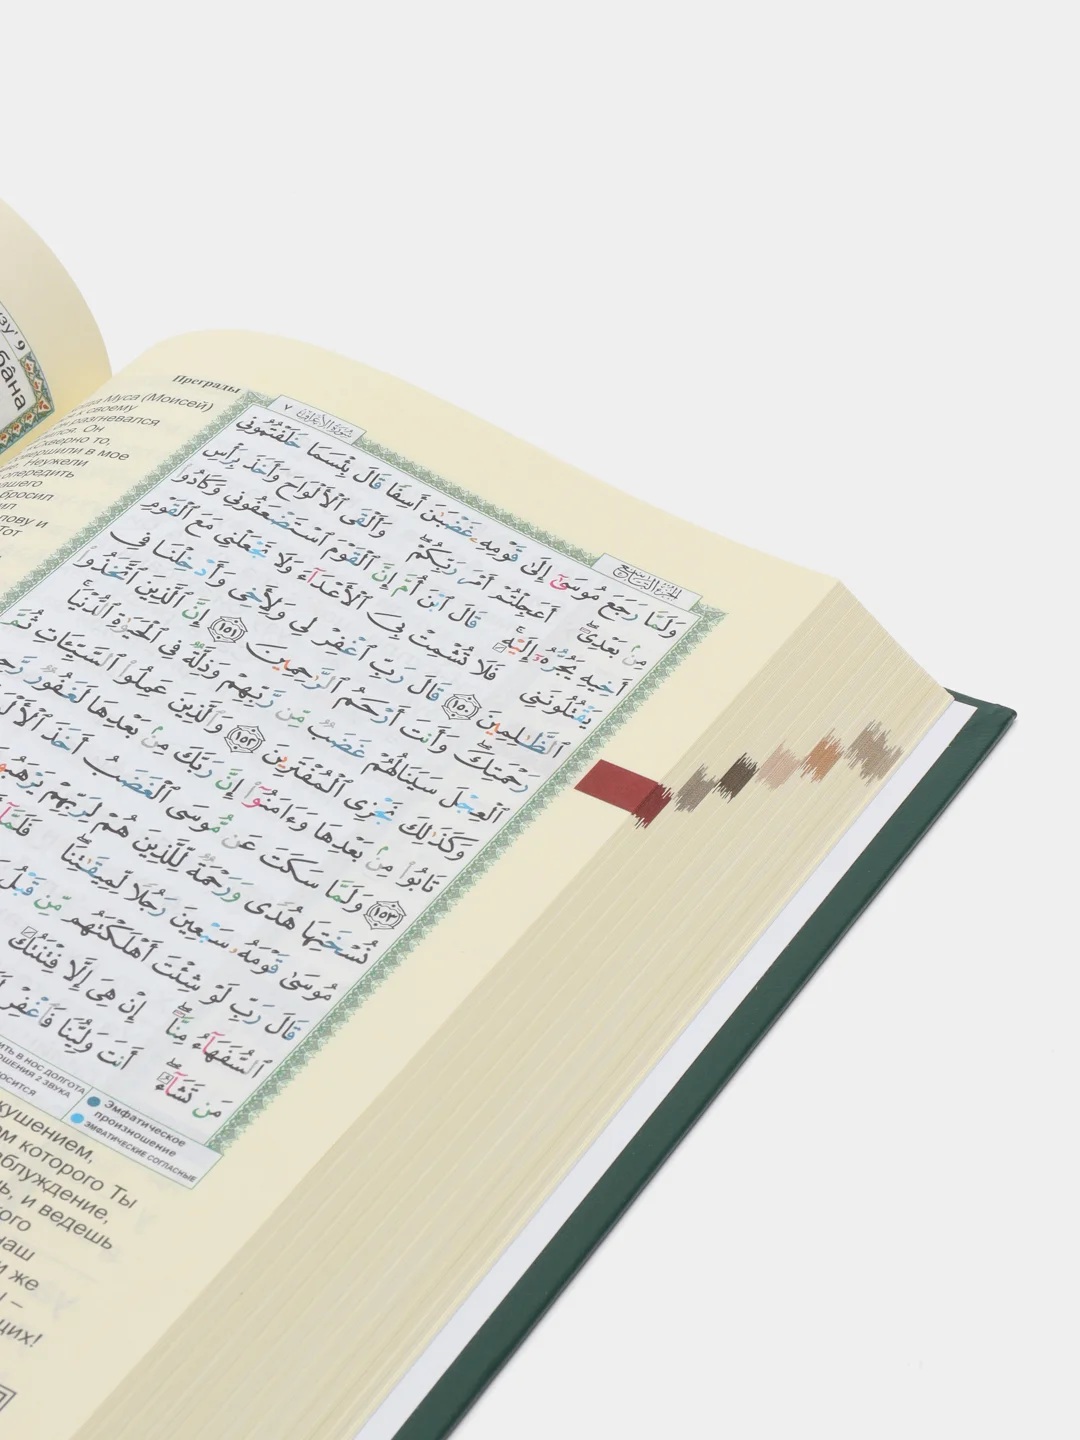 зу' 9
бāна
Преграды
ща Муса (Моисей)
к своему
он разгневался
Он
Скверно то,
вершили в мое
Неужели
опередить
ашего
бросил
ил
лову и
Тот
سُورَةُ الْأَعْرَاف ٧
الجزء التاسع
وَلَمَّا رَجَعَ مُوسَىٰٓ إِلَىٰ قَوْمِهِۦ غَضْبَـٰنَ أَسِفًا قَالَ بِئْسَمَا خَلَفْتُمُونِى
مِنۢ بَعْدِىٓ ۖ أَعَجِلْتُمْ أَمْرَ رَبِّكُمْ ۖ وَأَلْقَى ٱلْأَلْوَاحَ وَأَخَذَ بِرَأْسِ
أَخِيهِ يَجُرُّهُۥٓ إِلَيْهِ ۚ قَالَ ٱبْنَ أُمَّ إِنَّ ٱلْقَوْمَ ٱسْتَضْعَفُونِى وَكَادُوا۟
يَقْتُلُونَنِى فَلَا تُشْمِتْ بِىَ ٱلْأَعْدَآءَ وَلَا تَجْعَلْنِى مَعَ ٱلْقَوْمِ
ٱلظَّـٰلِمِينَ ١٥٠ قَالَ رَبِّ ٱغْفِرْ لِى وَلِأَخِى وَأَدْخِلْنَا فِى
رَحْمَتِكَ ۖ وَأَنتَ أَرْحَمُ ٱلرَّٰحِمِينَ ١٥١ إِنَّ ٱلَّذِينَ ٱتَّخَذُوا۟
ٱلْعِجْلَ سَيَنَالُهُمْ غَضَبٌ مِّن رَّبِّهِمْ وَذِلَّةٌ فِى ٱلْحَيَوٰةِ ٱلدُّنْيَا ۚ
وَكَذَٰلِكَ نَجْزِى ٱلْمُفْتَرِينَ ١٥٢ وَٱلَّذِينَ عَمِلُوا۟ ٱلسَّيِّـَٔاتِ ثُمَّ
تَابُوا۟ مِنۢ بَعْدِهَا وَءَامَنُوٓا۟ إِنَّ رَبَّكَ مِنۢ بَعْدِهَا لَغَفُورٌ رَّحِ
١٥٣ وَلَمَّا سَكَتَ عَن مُّوسَى ٱلْغَضَبُ أَخَذَ ٱلْأَلْ
نُسْخَتِهَا هُدًى وَرَحْمَةٌ لِّلَّذِينَ هُمْ لِرَبِّهِمْ يَرْهَبُ
مُوسَىٰ قَوْمَهُۥ سَبْعِينَ رَجُلًا لِّمِيقَـٰتِنَا ۖ فَلَمَّآ
قَالَ رَبِّ لَوْ شِئْتَ أَهْلَكْتَهُم مِّن قَبْلُ
ٱلسُّفَهَآءُ مِنَّآ ۖ إِنْ هِىَ إِلَّا فِتْنَتُكَ
مَن تَشَآءُ ۖ أَنتَ وَلِيُّنَا فَٱغْفِرْ
ИТЬ В НОС ДОЛГОТА
ОШЕНИЯ 2 ЗВУКА
ОСИТСЯ
Эмфатическое
произношение
ЭМФАТИЧЕСКИЕ СОГЛАСНЫЕ
кушением,
ем которого Ты
аблуждение,
шь, и ведешь
кого
наш
и же
ы –
щих!